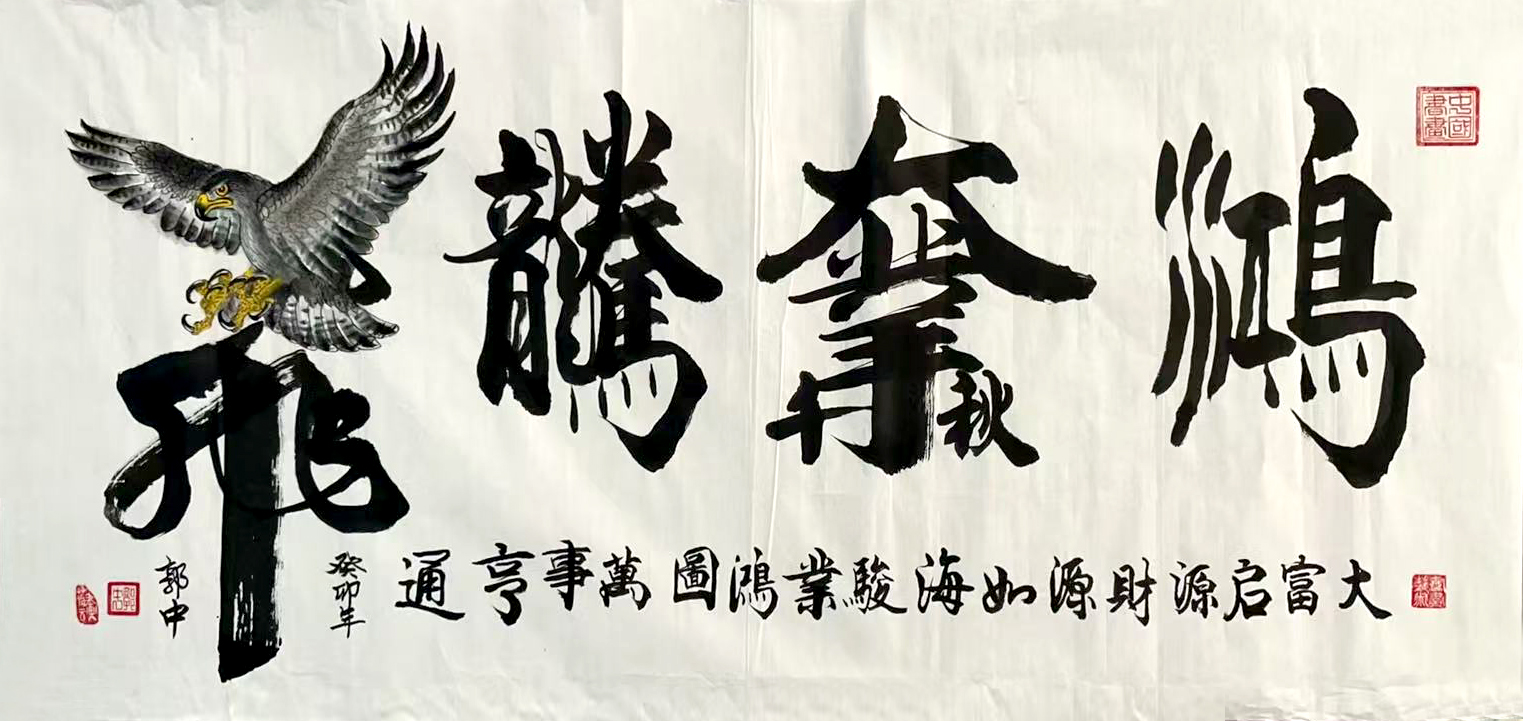 中國書畫
鴻騰飛
大富启源財源如海駿業鴻圖萬事亨通
癸卯年
郭中